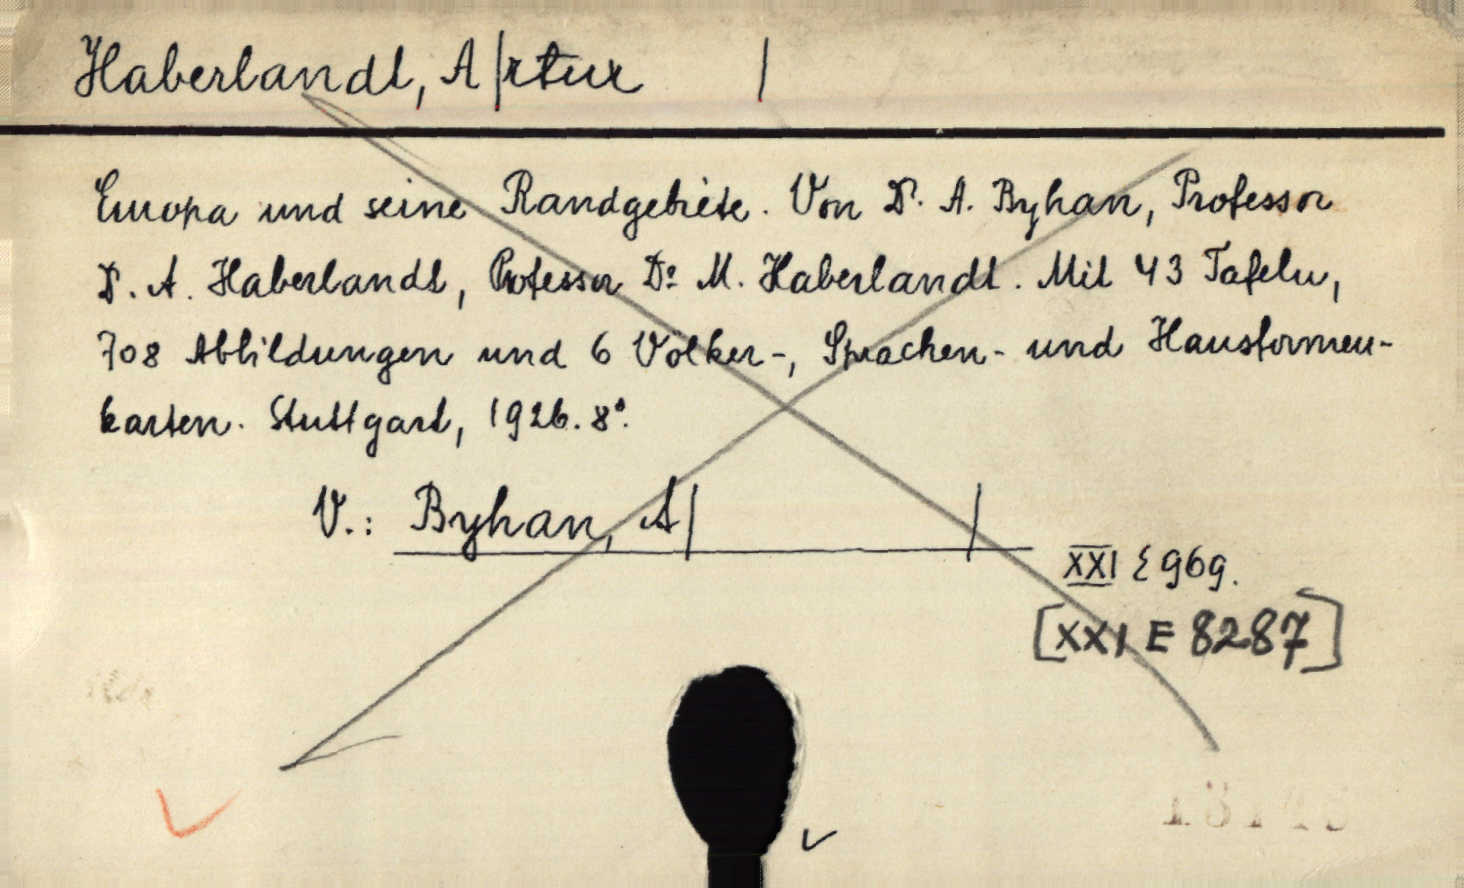 Haberlandt, A|rtur |
Europa und seine Randgebiete. Von Dr. A. Byhan, Professor
Dr. A. Haberlandt, Professor Dr. M. Haberlandt. Mit 43 Tafeln,
708 Abbildungen und 6 Völker-, Sprachen- und Hausformen-
karten. Stuttgart, 1926. 8°.
V.: Byhan, A| |
XXI E 969.
[XXI E 8287]